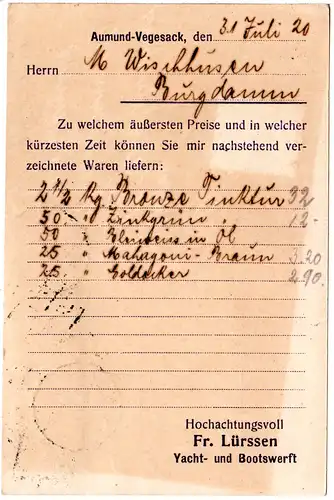 Aumund-Vegesack, den 31 Juli 20
Herrn M Wischhusen
Burgdamm
Zu welchem äußersten Preise und in welcher
kürzesten Zeit können Sie mir nachstehend ver-
zeichnete Waren liefern:
2 1/2 Kg. Bronze Tinktur 32
50 " Zinkgrün " 12-
50 " Bleiweiss in Öl
25 " Mahagoni-Braun 3.20
25 " Goldocker 2.90
Hochachtungsvoll
Fr. Lürssen
Yacht- und Bootswerft